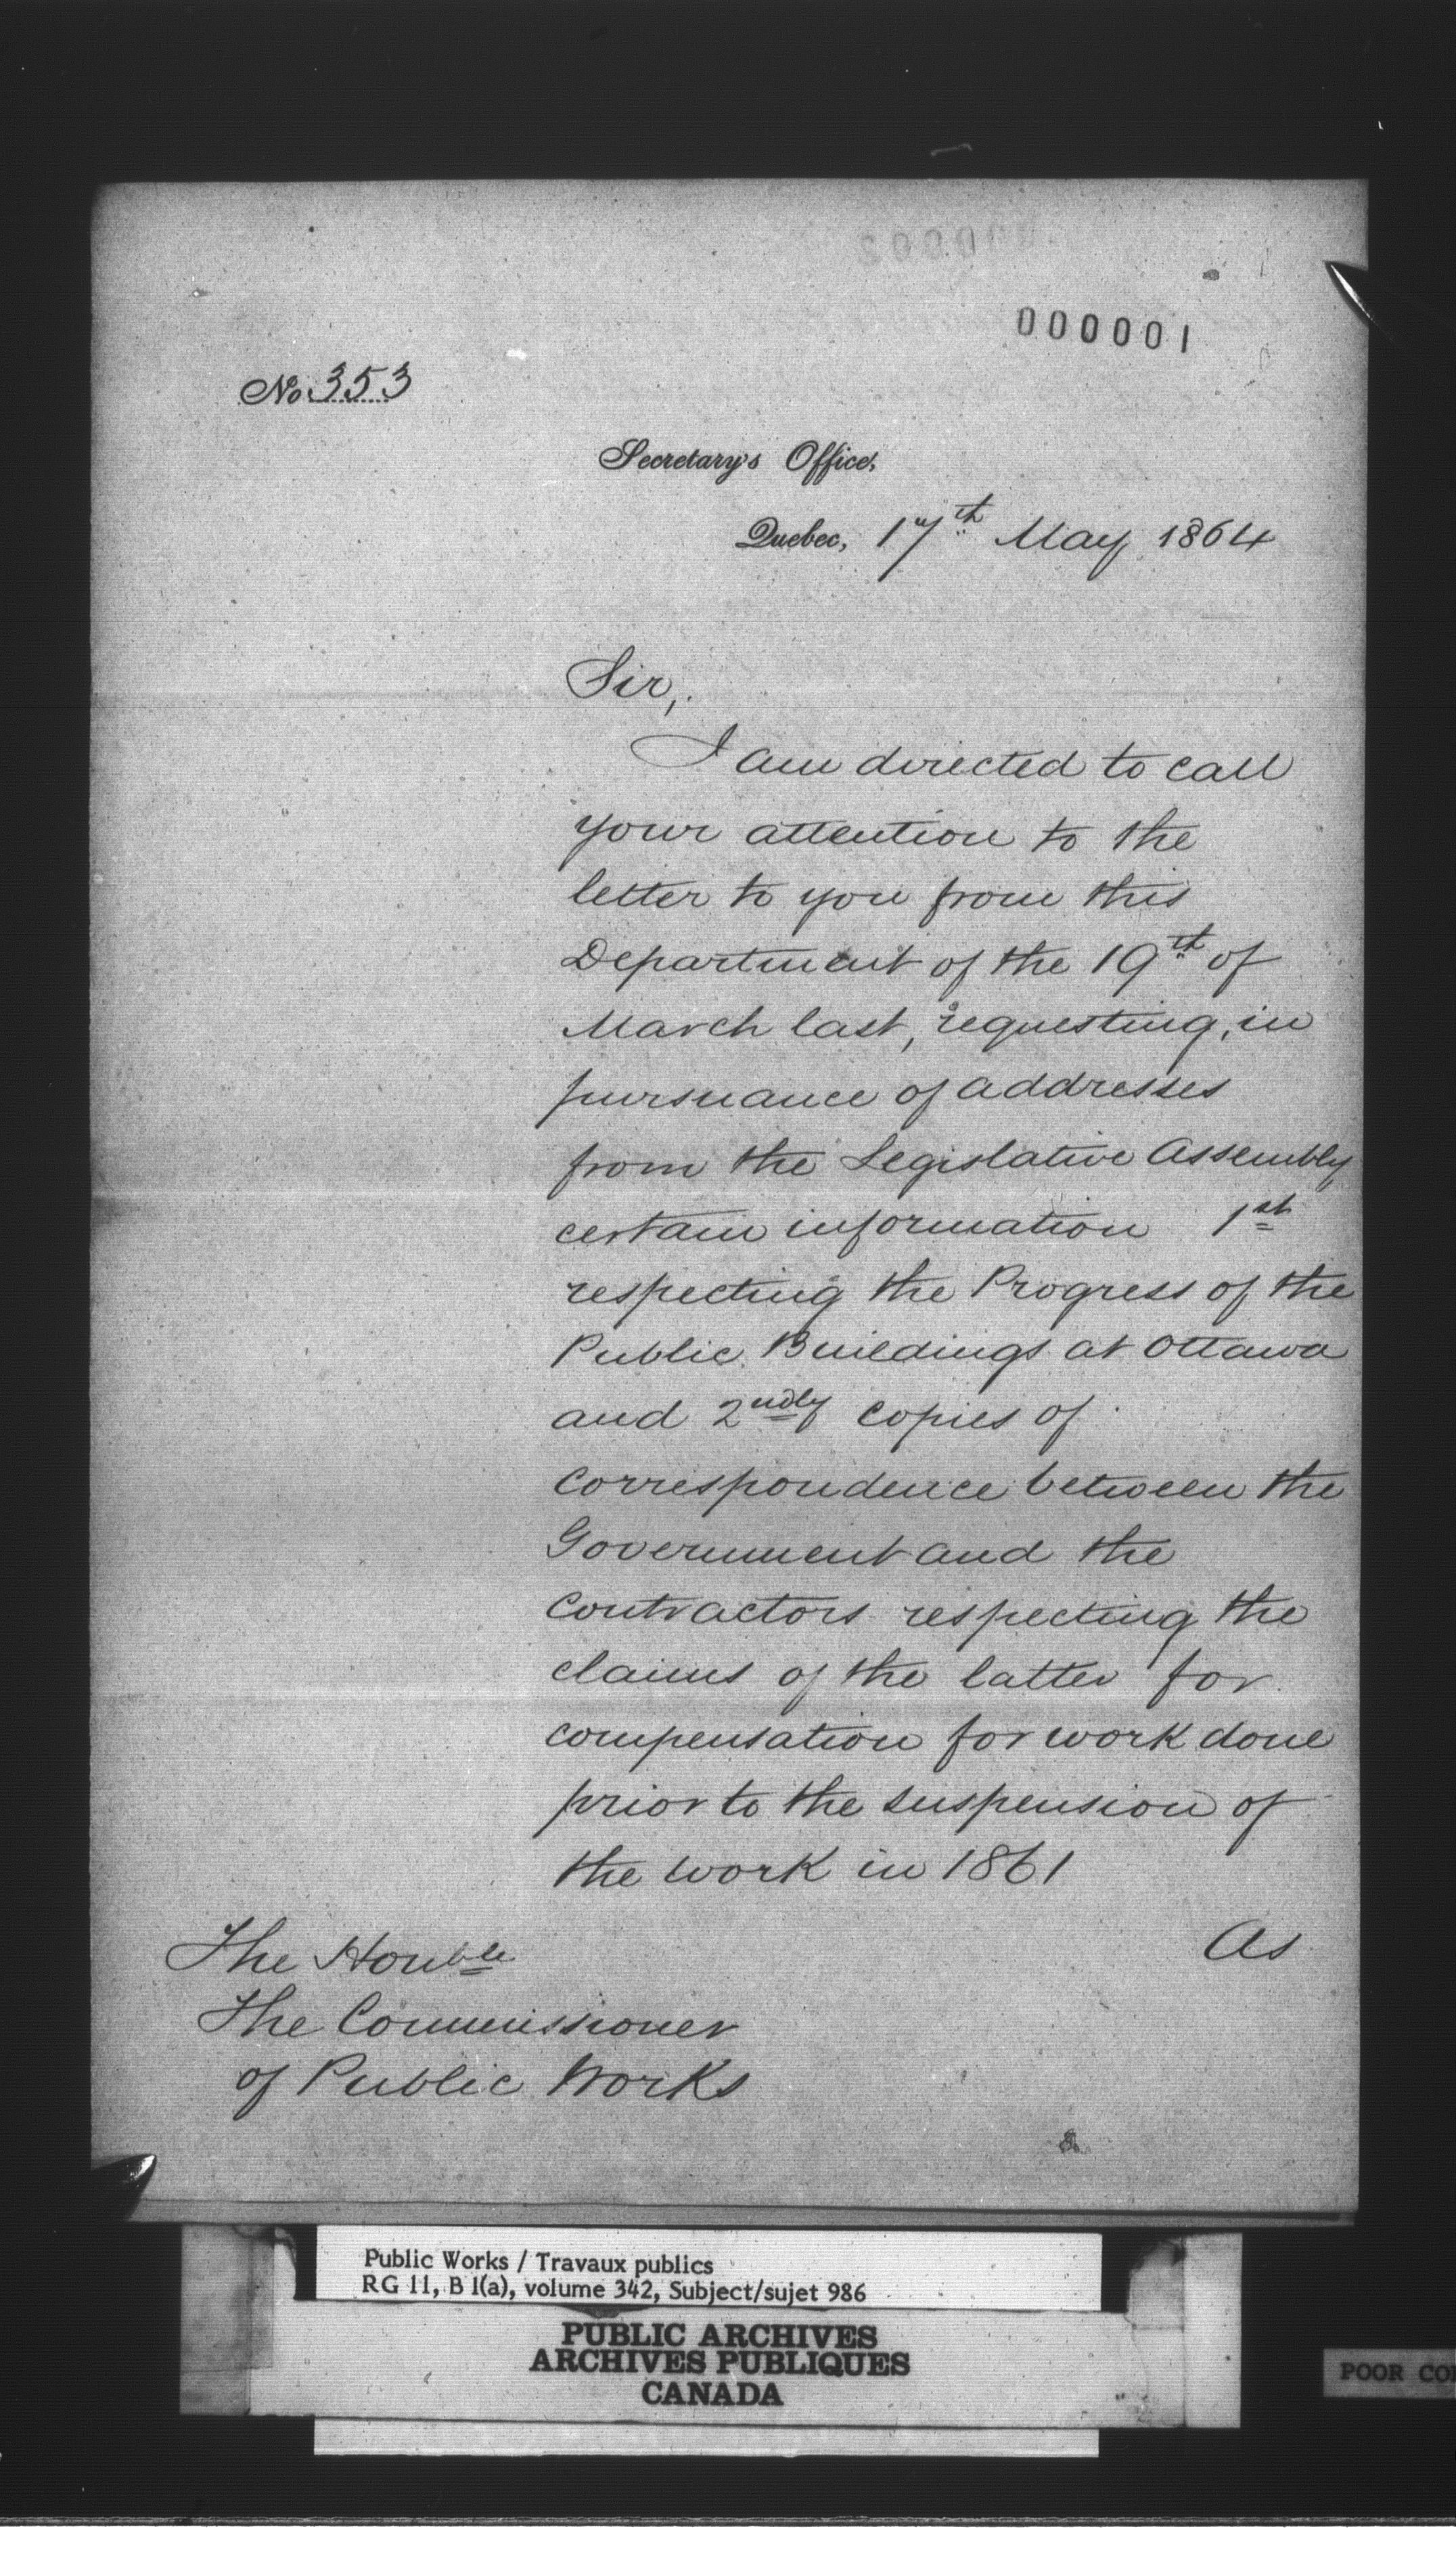 000001
No. 353
Secretary's Office,
Quebec, 17th May 1864
Sir,
I am directed to call
your attention to the
letter to you from this
Department of the 19th of
March last, requesting, in
pursuance of addresses
from the Legislative Assembly
certain information 1st
respecting the Progress of the
Public Buildings at Ottawa
and 2ndly copies of
correspondence between the
Government and the
contractors respecting the
claims of the latter for
compensation for work done
prior to the suspension of
the work in 1861
As
The Honble
The Commissioner
of Public Works
Public Works / Travaux publics
RG 11, B 1(a), volume 342, Subject/sujet 986
PUBLIC ARCHIVES
ARCHIVES PUBLIQUES
CANADA
POOR CO